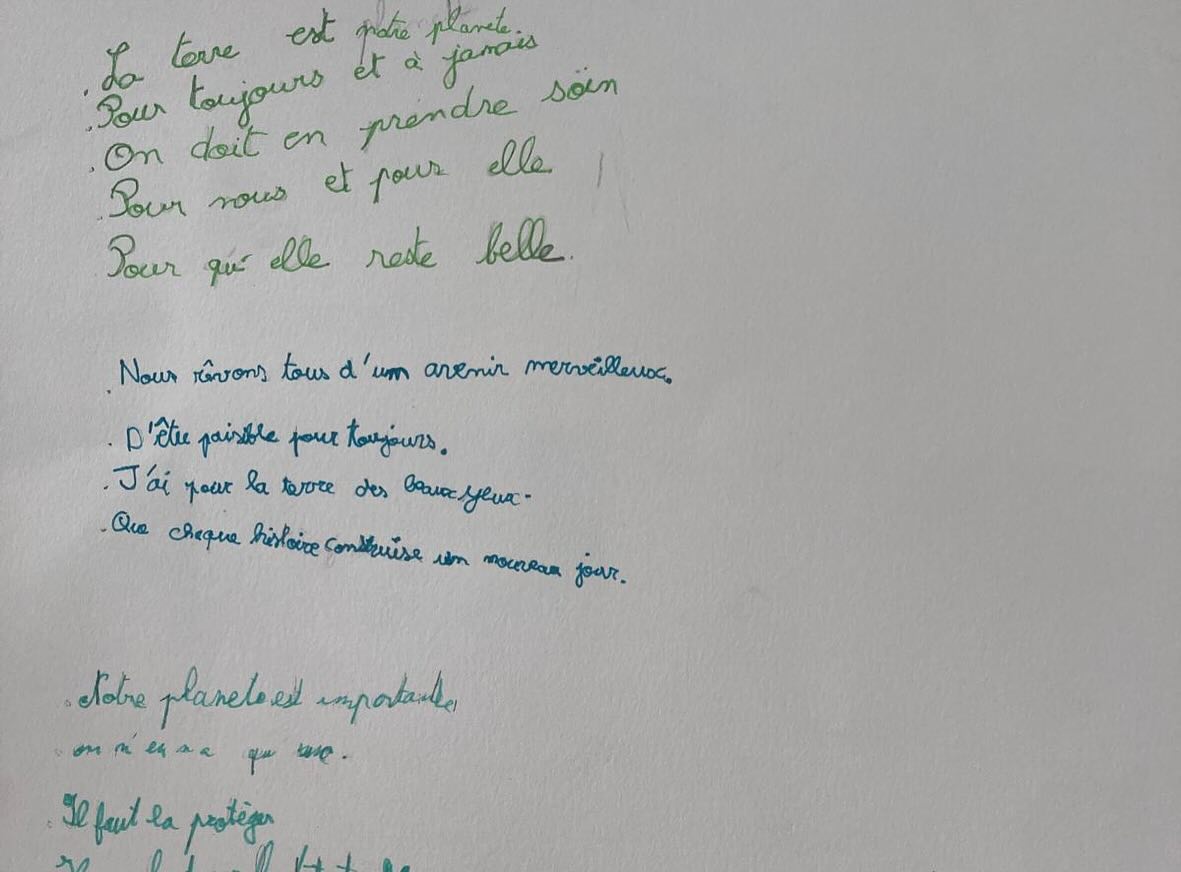 La terre est notre planete.
Pour toujours et à jamais
On doit en prendre soin
Pour nous et pour elle
Pour qu'elle reste belle.
Nous rêvons tous d'un avenir merveilleux.
D'être paisible pour toujours.
J'ai pour la terre des beaux yeux.
Que chaque histoire construise un nouveau jour.
Notre planete est importante,
on n'en a que une.
Il faut la protéger